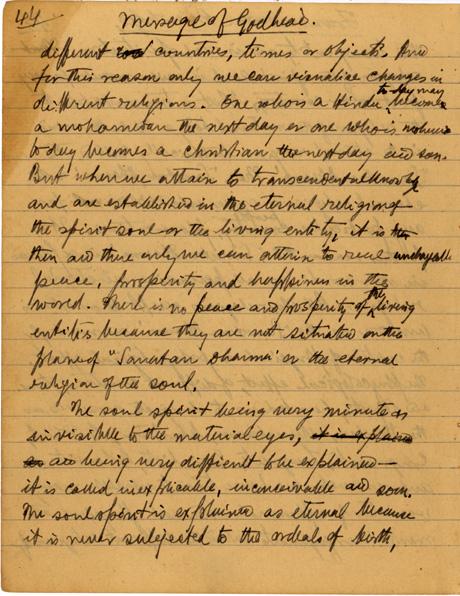 44 Message of Godhead.
different countries, times or objects. And
for this reason only we can visualise changes in
different religions. One who is a Hindu to-day may become
a mohamedan the next day or one who is mohame
to day becomes a Christian the next day and so on.
But when we attain to transcendental knowl
and are established in the eternal religion of
the spirit soul or the living entity, it is the
then and then only, we can attain to real
peace, prosperity and happiness in the
world. There is no peace and prosperity of the living
entities because they are not situated on the
plane of "Sanatan Dharma" or the eternal
religion of the soul.
The soul spirit being very minute as
invisible to the material eyes, it is explained
as being very difficult to be explained—
it is called inexplicable, inconceivable and so on.
The soul spirit is explained as eternal because
it is never subjected to the ordeals of birth,